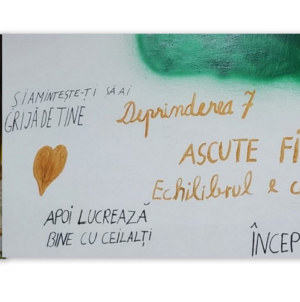 ȘI AMINTEȘTE-ȚI SĂ AI
GRIJĂ DE TINE
Deprinderea 7
ASCUTE FI
Echilibrul e c
APOI LUCREAZĂ
BINE CU CEILALȚI
ÎNCEP